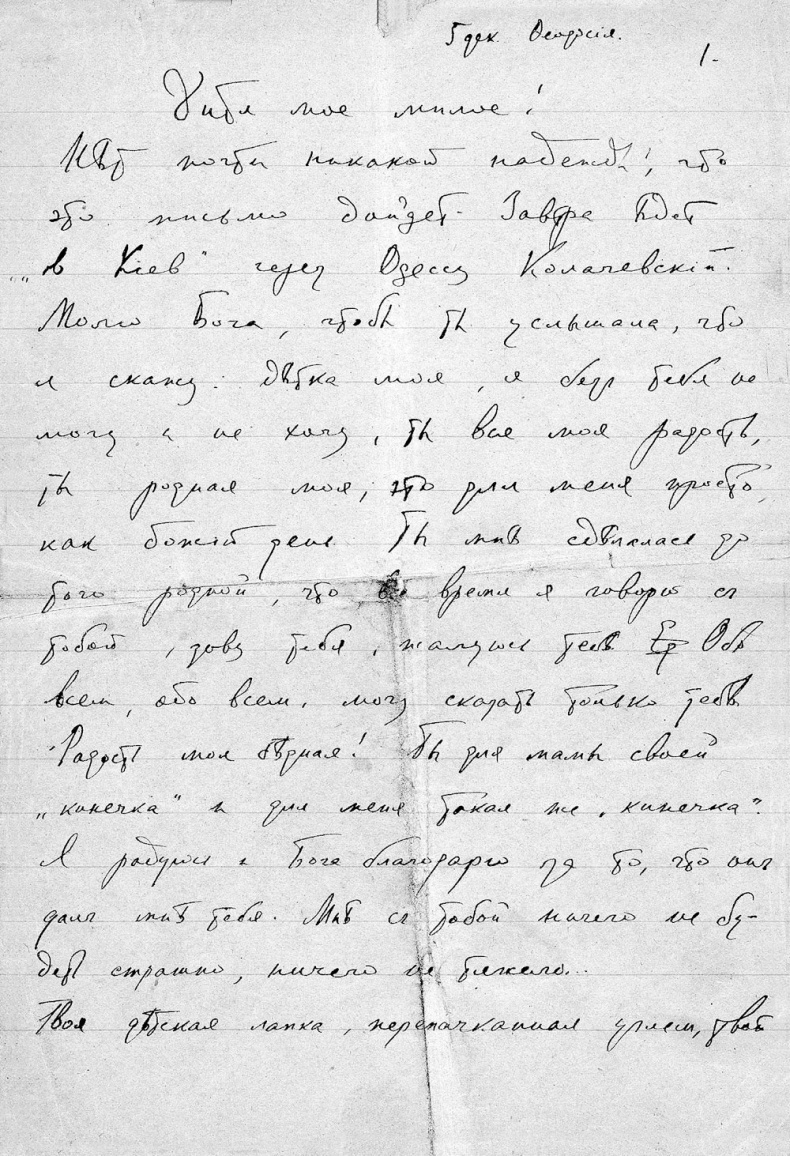 5 дек. Ѳеодосія.
1.
Дитя мое милое!
Нѣт почти никакой надежды, что
это письмо дойдет. Завтра ѣдет
„в Кіев" через Одессу Колачевскій.
Молю Бога, чтобы ты услышала, что
я скажу: дѣтка моя, я без тебя не
могу и не хочу, ты вся моя радость,
ты родная моя, это для меня просто,
как божій день. Ты мнѣ сдѣлалась до
того родной, что все время я говорю съ
тобой, зову тебя, жалуюсь тебѣ Обо
всем, обо всем, могу сказать только тебѣ
Радость моя бѣдная! Ты для мамы своей
„кинечка" и для меня такая же „кинечка".
Я радуюсь и Бога благодарю за то, что онъ
далъ мнѣ тебя. Мнѣ съ тобой ничего не бу-
дет страшно, ничего не тяжело...
Твоя дѣтская лапка, перепачканная углем, твой